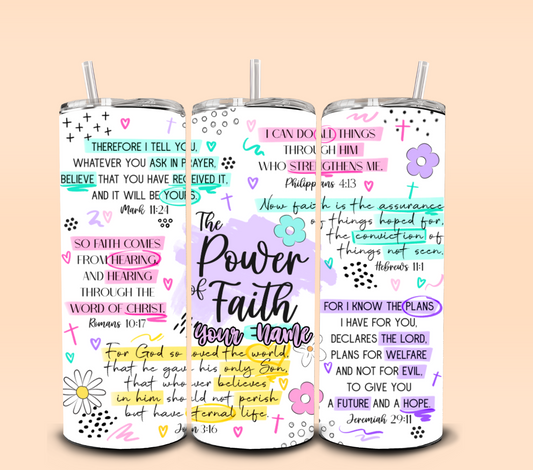 THEREFORE I TELL YOU,
WHATEVER YOU ASK IN PRAYER,
BELIEVE THAT YOU HAVE RECEIVED IT,
AND IT WILL BE YOURS.
Mark 11:24
SO FAITH COMES
FROM HEARING,
AND HEARING
THROUGH THE
WORD OF CHRIST.
Romans 10:17
The
Power
of
Faith
Your Name
For God so loved the world,
that he gave his only Son,
that whoever believes
in him should not perish
but have eternal life.
John 3:16
I CAN DO ALL THINGS
THROUGH HIM
WHO STRENGTHENS ME.
Philippians 4:13
Now faith is the assurance
of things hoped for,
the conviction of
things not seen.
Hebrews 11:1
FOR I KNOW THE PLANS
I HAVE FOR YOU,
DECLARES THE LORD,
PLANS FOR WELFARE
AND NOT FOR EVIL,
TO GIVE YOU
A FUTURE AND A HOPE.
Jeremiah 29:11